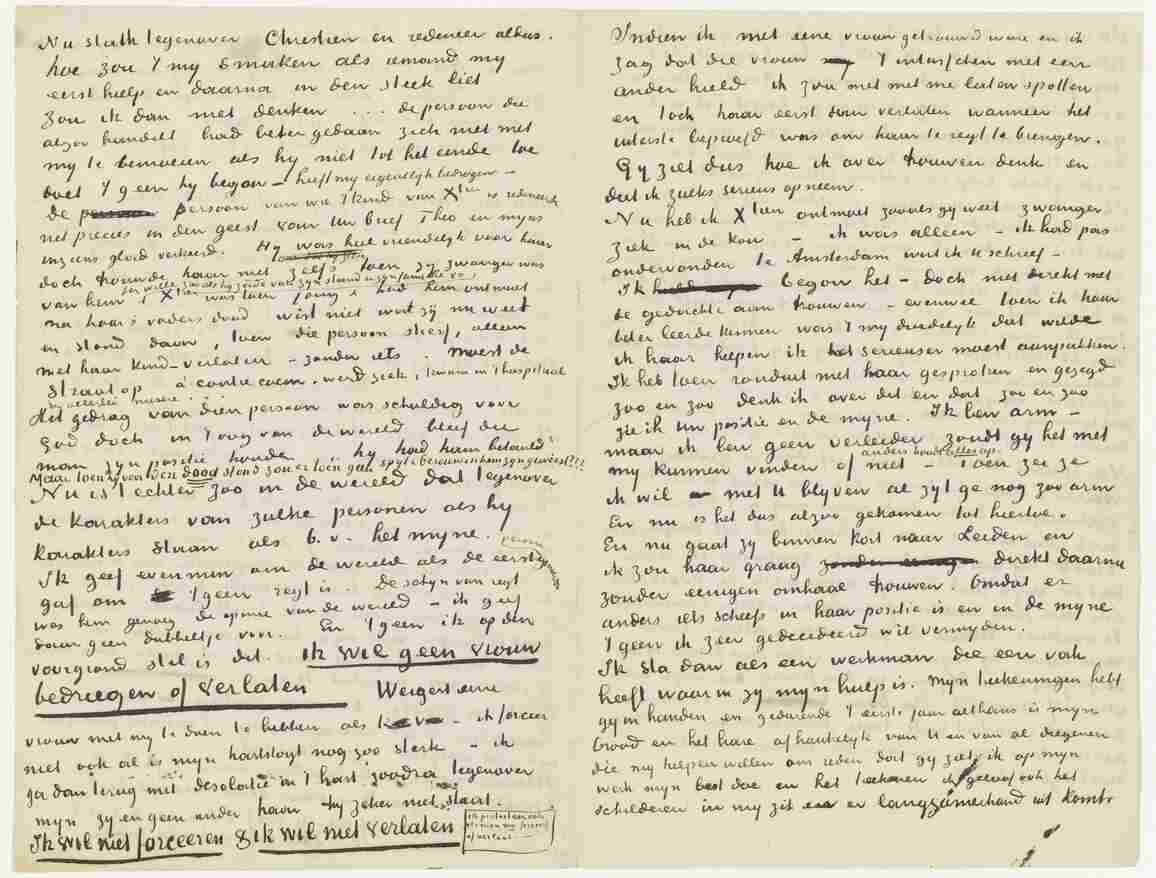 Nu sta ik tegenover Christien en redeneer aldus.
hoe zou 't my smaken als iemand my
eerst hielp en daarna in den steek liet
zou ik dan niet denken ... de persoon die
alzoo handelt had beter gedaan zich niet met
my te bemoeien als hy niet tot het einde toe
doet 't geen hy begon – heeft my eigenlyk bedrogen –
de persoon van wie 't kind van Xtien is redeneerde
net precies in den geest van Uw brief Theo en myns
inziens glad verkeerd. Hy was heel vriendelyk voor haar
doch trouwde haar niet zelfs toen zy zwanger was
van hem om wille zooals hy zeide van zyn stand en zyn familie &c.
Xtien was toen jong & had hem ontmoet
na haar's vaders dood wist niet wat zy nu weet
en stond daar, toen die persoon stierf, alleen
met haar kind – verlaten – zonder iets. Moest de
straat op à contre coeur. werd ziek, kwam in 't hospitaal
in allerlei misere.
Het gedrag van dien persoon was schuldig voor
God doch in 't oog van de wereld bleef die
man zyn positie houden "hy had haar betaald"
Maar toen hy voor den dood stond zou er toen geen spyt & berouw in hem zyn geweest???
Nu is 't echter zoo in de wereld dat tegenover
de karakters van zulke personen als hy
karakters staan als b.v. het myne.
Ik geef evenmin om de wereld als de eerstgenoemde persoon
gaf om 't geen regt is. De schyn van regt
was hem genoeg de opinie van de wereld – ik geef
daar geen dubbeltje voor. En 't geen ik op den
voorgrond stel is dit. Ik wil geen vrouw
bedriegen of verlaten Weigert eene
vrouw met my te doen te hebben als K v – ik forceer
niet ook al is myn hartstogt nog zoo sterk – ik
ga dan terug met desolatie in 't hart zoodra tegenover
myn zy en geen ander haar – hy zeker niet, staat.
Ik wil niet forceeren & ik wil niet verlaten
ik protesteer ook
als men my forceert
of verlaat
Indien ik met eene vrouw getrouwd ware en ik
zag dat die vrouw 't intusschen met een
ander hield ik zou niet met me laten spotten
en toch haar eerst dan verlaten wanneer het
uiterste beproefd was om haar te regt te brengen.
Gy ziet dus hoe ik over trouwen denk en
dat ik zulks serieus opneem.
Nu heb ik Xtien ontmoet zooals gy weet zwanger
ziek in de kou – ik was alleen – ik had pas
ondervonden te Amsterdam wat ik U schreef –
Ik begon het – doch niet direkt met
de gedachte aan trouwen – evenwel toen ik haar
beter leerde kennen was 't my duidelyk dat wilde
ik haar helpen ik het serieuser moest aanpakken.
Ik heb toen ronduit met haar gesproken en gezegd
zoo en zoo denk ik over dit en dat zoo en zoo
zie ik Uw positie en de myne. Ik ben arm –
maar ik ben geen verleider zoudt gy het met
my kunnen vinden of niet – anders houdt alles op. Toen zei ze
ik wil met U blyven al zyt ge nog zoo arm
En nu is het dus alzoo gekomen tot hiertoe.
En nu gaat zy binnen kort naar Leiden en
ik zou haar graag direkt daarna
zonder eenigen omhaal trouwen. Omdat er
anders iets scheefs in haar positie is en in de myne
't geen ik zeer gedecideerd wil vermyden.
Ik sta dan als een werkman die een vak
heeft waar in zy myn hulp is. Myn teekeningen hebt
gy in handen en gedurende 't eerste jaar althans is myn
brood en het hare afhankelyk van U en van al diegenen
die my helpen willen om reden dat gy ziet ik op myn
werk myn best doe en het teekenen & geloof ook het
schilderen in my zit en er langzamerhand uit komt.